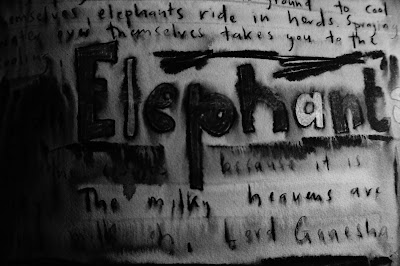 ground to cool
themselves, elephants ride in herds. Spraying
water over themselves takes you to the
cooling
Elephants
because it is
The milky heavens are
Lord Ganesha